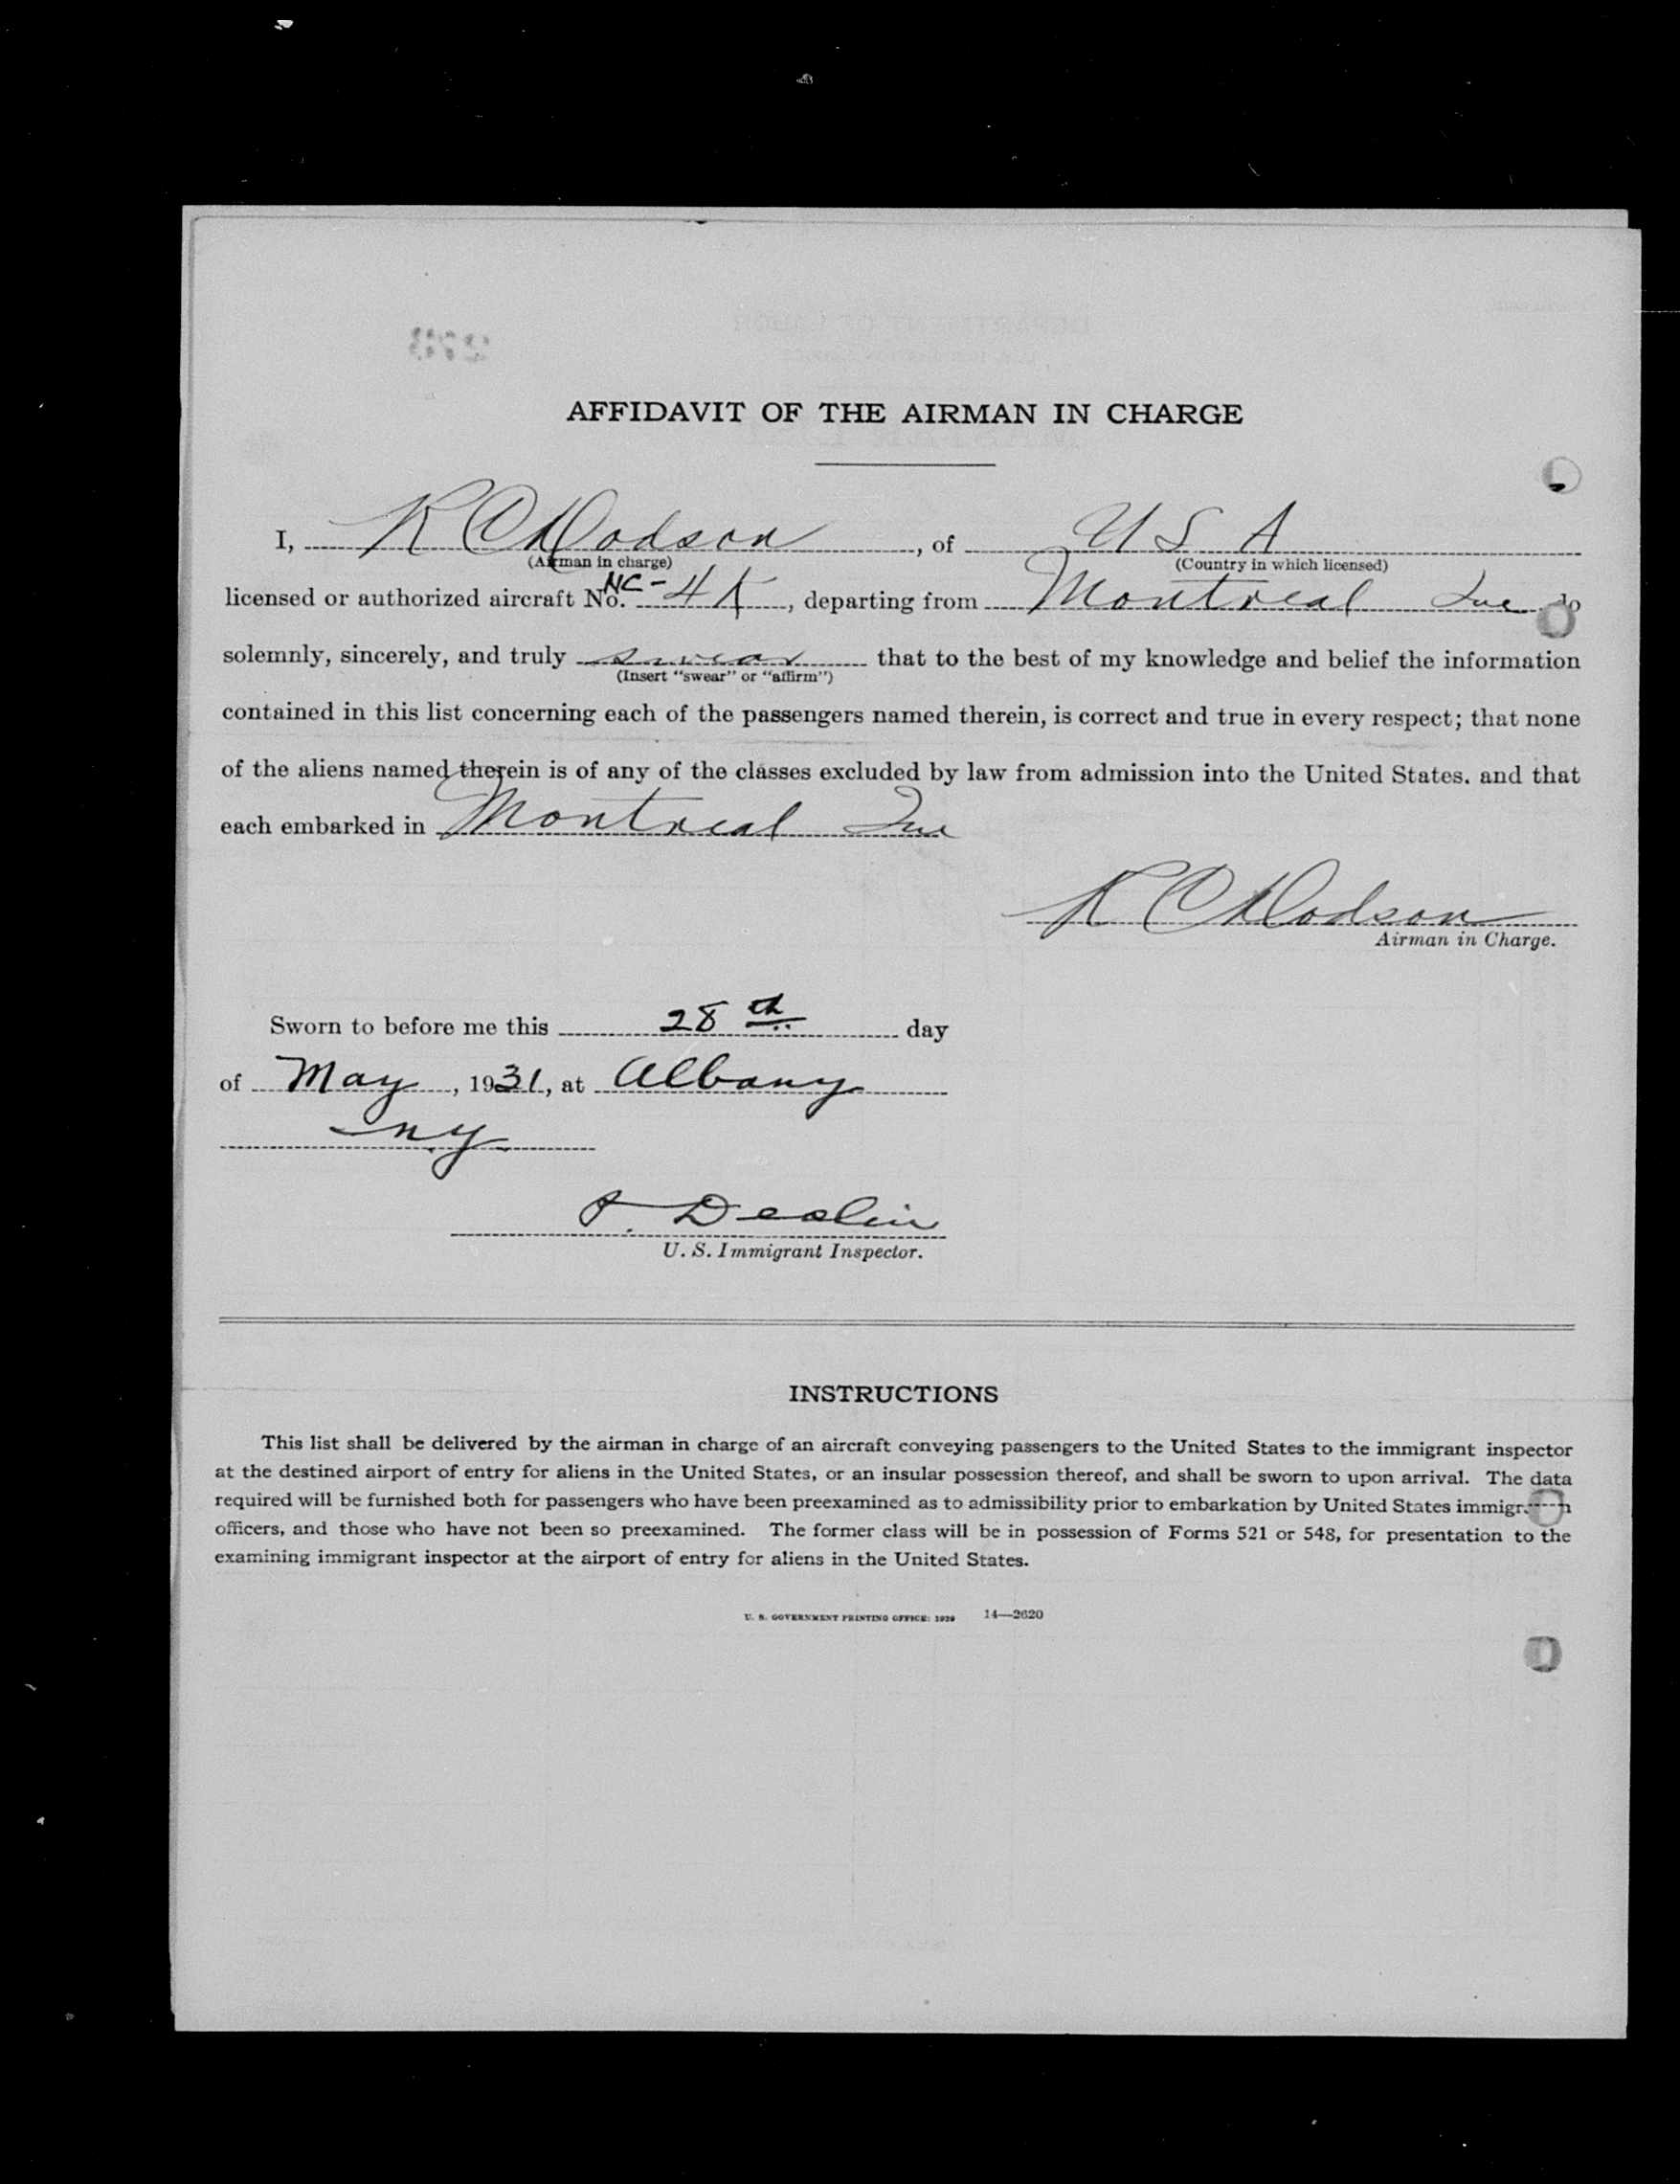 AFFIDAVIT OF THE AIRMAN IN CHARGE
I, R C Dodson, of U S A
(Airman in charge) (Country in which licensed)
licensed or authorized aircraft No. NC-4 , departing from Montreal Que do
solemnly, sincerely, and truly swear that to the best of my knowledge and belief the information
(Insert "swear" or "affirm")
contained in this list concerning each of the passengers named therein, is correct and true in every respect; that none
of the aliens named therein is of any of the classes excluded by law from admission into the United States. and that
each embarked in Montreal Que
R C Dodson
Airman in Charge.
Sworn to before me this 28th day
of May, 1931, at Albany
N.Y.
U. S. Immigrant Inspector.
INSTRUCTIONS
This list shall be delivered by the airman in charge of an aircraft conveying passengers to the United States to the immigrant inspector
at the destined airport of entry for aliens in the United States, or an insular possession thereof, and shall be sworn to upon arrival. The data
required will be furnished both for passengers who have been preexamined as to admissibility prior to embarkation by United States
officers, and those who have not been so preexamined. The former class will be in possession of Forms 521 or 548, for presentation to the
examining immigrant inspector at the airport of entry for aliens in the United States.
U. S. GOVERNMENT PRINTING OFFICE: 1929 14—2620